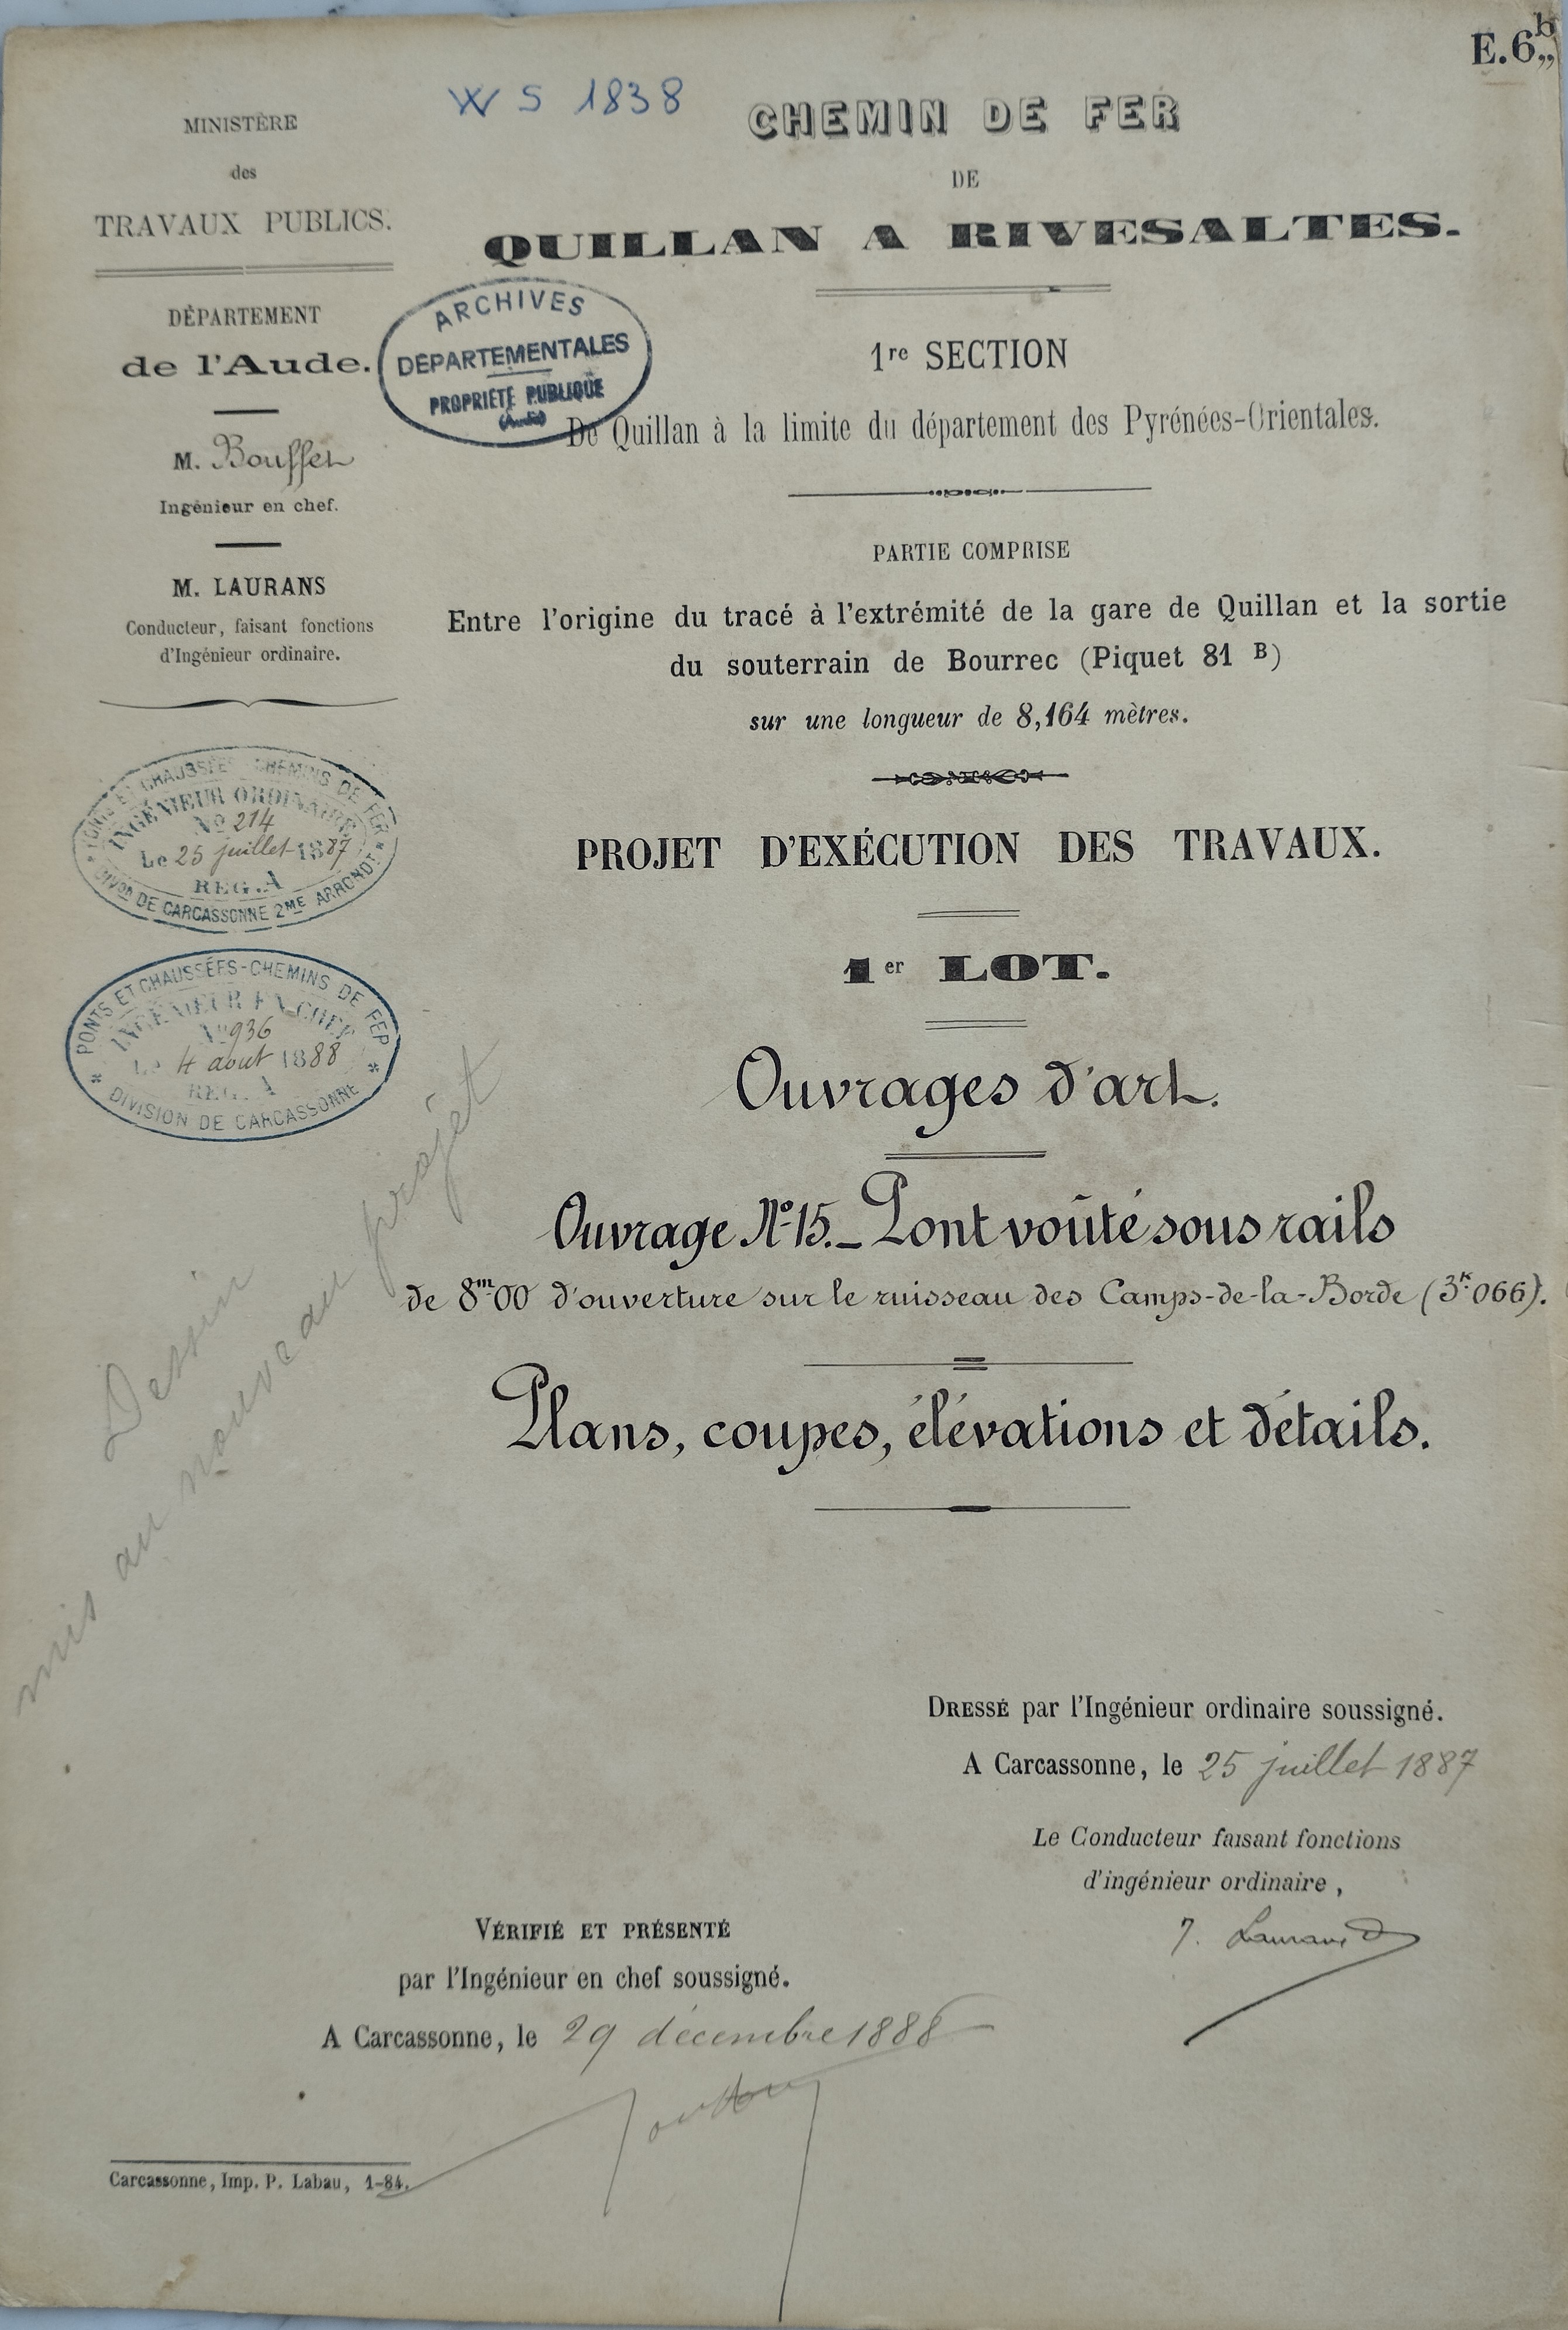 E.6b„
W S 1838
MINISTÈRE
des
TRAVAUX PUBLICS.
DÉPARTEMENT
de l'Aude.
M. Bouffet
Ingénieur en chef.
M. LAURANS
Conducteur, faisant fonctions
d'Ingénieur ordinaire.
PONTS ET CHAUSSÉES-CHEMINS DE FER
INGÉNIEUR ORDINAIRE
No 214
Le 25 juillet 1887
REG. A
DIVon DE CARCASSONNE 2ME ARRONDT
PONTS ET CHAUSSÉES-CHEMINS DE FER
INGÉNIEUR EN CHEF
No 936
Le 4 aout 1888
REG. A
DIVISION DE CARCASSONNE
Dessin
mis au nouveau projet
CHEMIN DE FER
DE
QUILLAN A RIVESALTES.
ARCHIVES
DEPARTEMENTALES
PROPRIÉTÉ PUBLIQUE
(Aude)
1re SECTION
De Quillan à la limite du département des Pyrénées-Orientales.
PARTIE COMPRISE
Entre l'origine du tracé à l'extrémité de la gare de Quillan et la sortie
du souterrain de Bourrec (Piquet 81 B)
sur une longueur de 8,164 mètres.
PROJET D'EXÉCUTION DES TRAVAUX.
1er LOT.
Ouvrages d'art.
Ouvrage No 15._ Pont voûté sous rails
de 8m00 d'ouverture sur le ruisseau des Camps-de-la-Borde (3k066).
Plans, coupes, élévations et détails.
DRESSÉ par l'Ingénieur ordinaire soussigné.
A Carcassonne, le 25 juillet 1887
Le Conducteur faisant fonctions
d'ingénieur ordinaire,
J. Laurans
VÉRIFIÉ ET PRÉSENTÉ
par l'Ingénieur en chef soussigné.
A Carcassonne, le 29 décembre 1888
Carcassonne, Imp. P. Labau, 1-84.